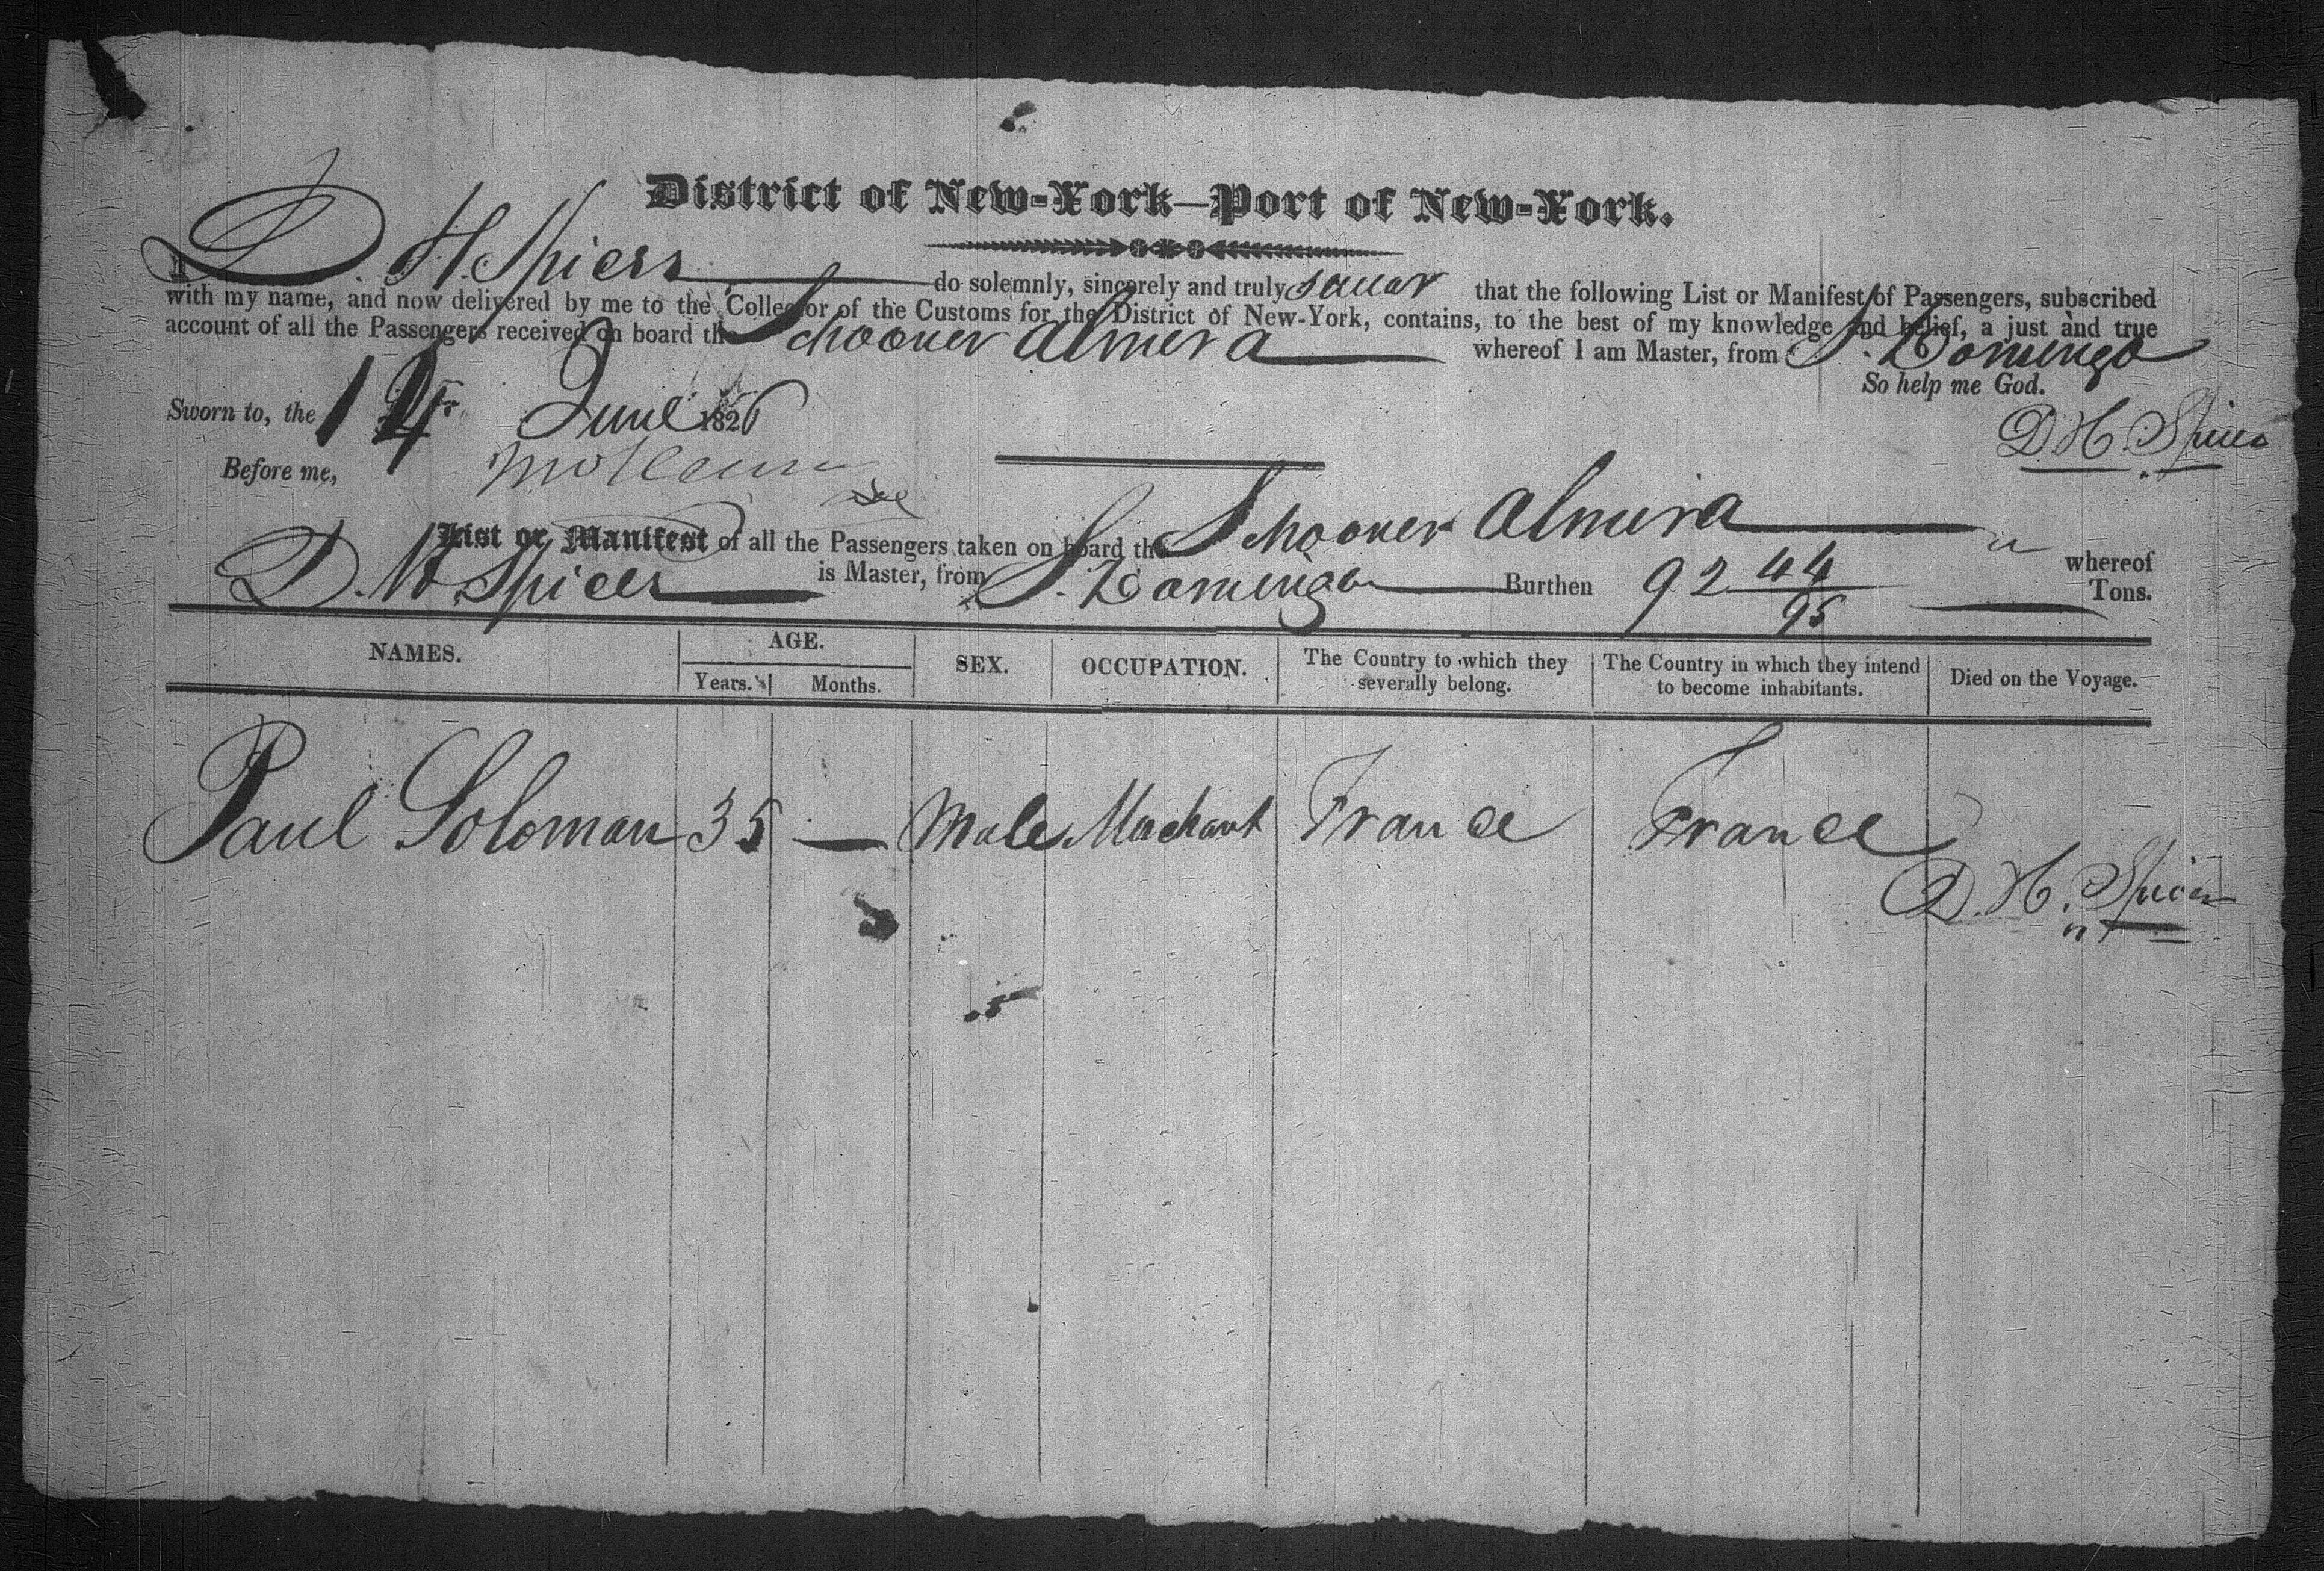 District of New-York—Port of New-York.
I D. H Spiers do solemnly, sincerely and truly swear that the following List or Manifest of Passengers, subscribed
with my name, and now delivered by me to the Collector of the Customs for the District of New-York, contains, to the best of my knowledge and belief, a just and true
account of all the Passengers received on board the Schooner Almira whereof I am Master, from S. Domingo
So help me God.
Sworn to, the 14 June 1826
D H Spiers
Before me,
List or Manifest of all the Passengers taken on board the Schooner Almira whereof
D. H Spiers is Master, from S. Domingo Burthen 92 44/95 Tons.
NAMES. AGE. SEX. OCCUPATION. The Country to which they severally belong. The Country in which they intend to become inhabitants. Died on the Voyage.
Years. Months.
Paul Soloman 35 — Male Merchant France France
D. H. Spiers